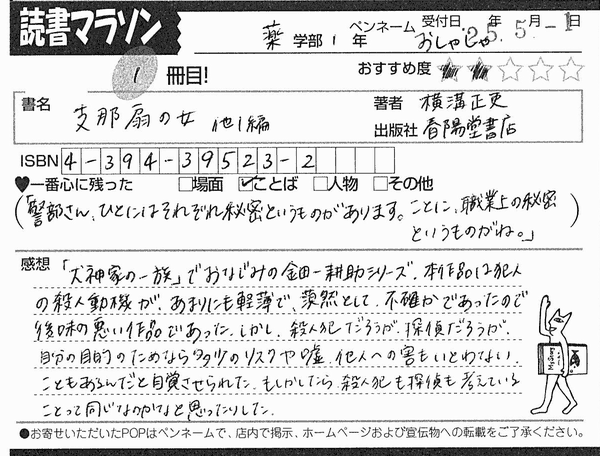 読書マラソン
薬 学部 1 年 ペンネーム おしゃじゃ 受付日 '25年 5月-1日
1 冊目!
おすすめ度 ★★☆☆☆
書名 支那扇の女 他1編
著者 横溝正史
出版社 春陽堂書店
ISBN 4-394-39523-2
♥一番心に残った □場面 ☑ことば □人物 □その他
(「警部さん、ひとにはそれぞれ秘密というものがあります。ことに、職業上の秘密
というものがね。」)
感想 「犬神家の一族」でおなじみの金田一耕助シリーズ。本作品は犯人
の殺人動機が、あまりにも軽薄で、漠然として、不確かであったので
後味の悪い作品であった。しかし、殺人犯だろうが、探偵だろうが、
自分の目的のためなら多少のリスクや嘘、他人への害もいとわない、
こともあるんだと自覚させられた。もしかしたら、殺人犯も探偵も考えている
ことって同じなのかなと思ったりした。
●お寄せいただいたPOPはペンネームで、店内で掲示、ホームページおよび宣伝物への転載をご了承ください。